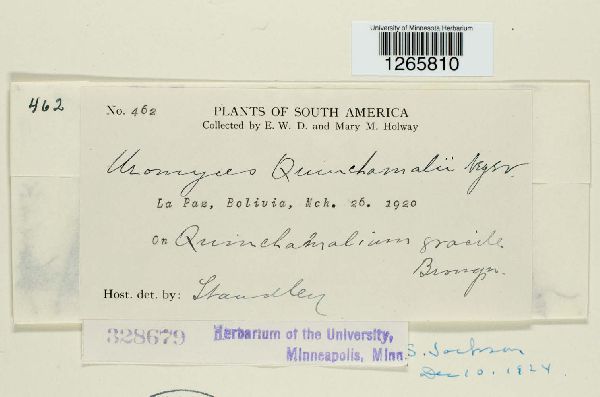 University of Minnesota Herbarium
1265810
462
No. 462
PLANTS OF SOUTH AMERICA
Collected by E. W. D. and Mary M. Holway
Uromyces Quinchamalii
La Paz, Bolivia, Mch. 26. 1920
on Quinchamalium gracile
Brongn.
Host. det. by: Standley
328679
Herbarium of the University,
Minneapolis, Minn.
S. Jackson
Dec 10. 1924.